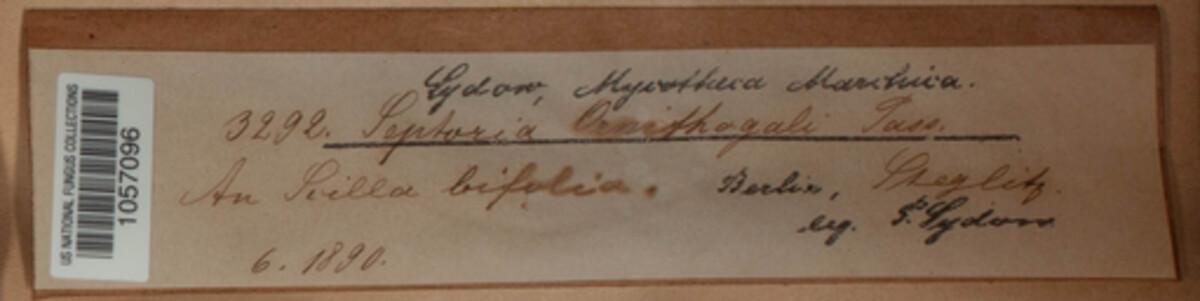 US NATIONAL FUNGUS COLLECTIONS
1057096
Sydow, Mycotheca Marchica.
3292. Septoria Ornithogali Pass.
An Scilla bifolia. Berlin, Steglitz.
leg. P. Sydow
6. 1890.